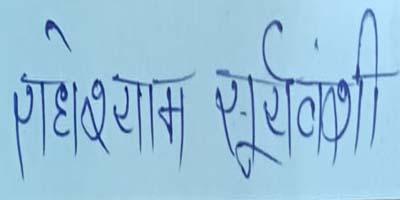 राधेश्याम सूर्यवंशी